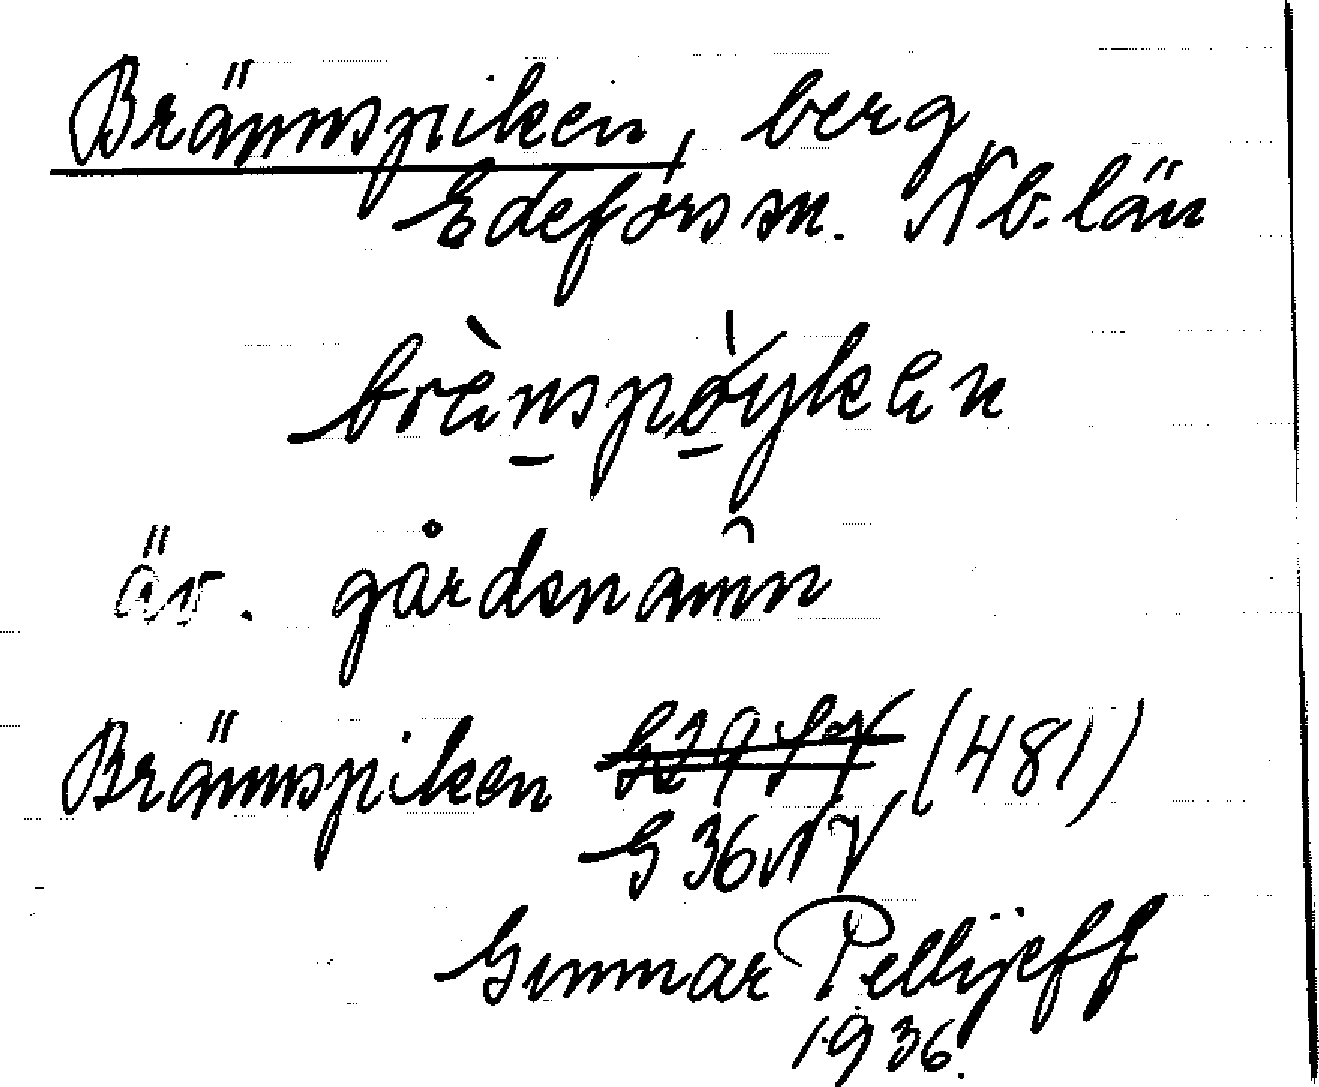 Brännspiken, berg
Edefors sn. Nb. län
brènspòyken
äv. gårdsnamn
Brännspiken (481)
G 36 NV
Gunnar Pellijeff
1936.